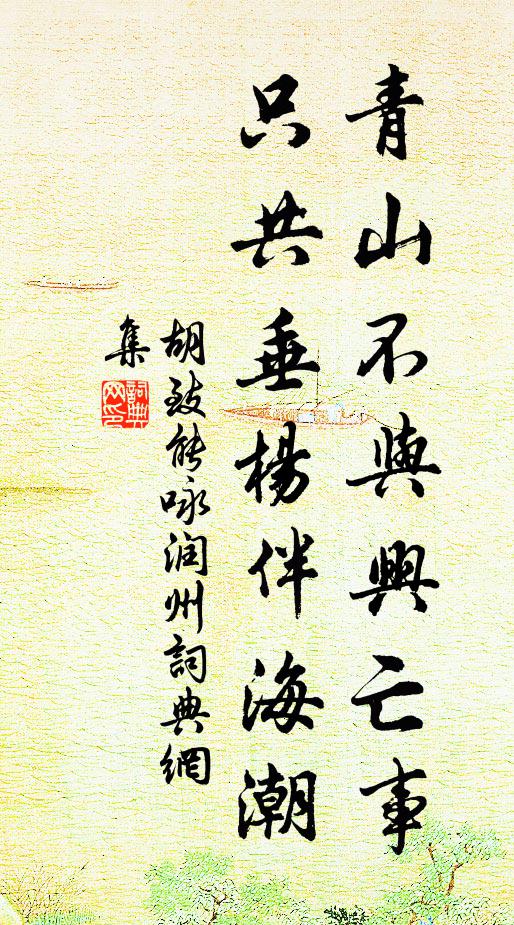 青山不與興亡事
只共垂楊伴海潮
胡致能咏润州詞典網
集
詞典網印